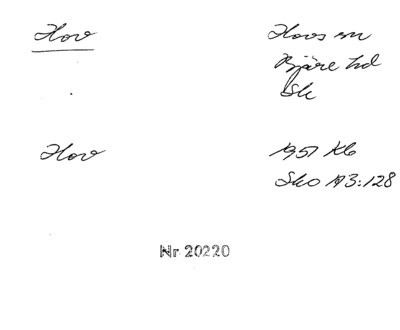 Hov
Hovs sn
Bjäre hd
Sk
Hov
1957 Kb
Sko A3:128
Nr 20220